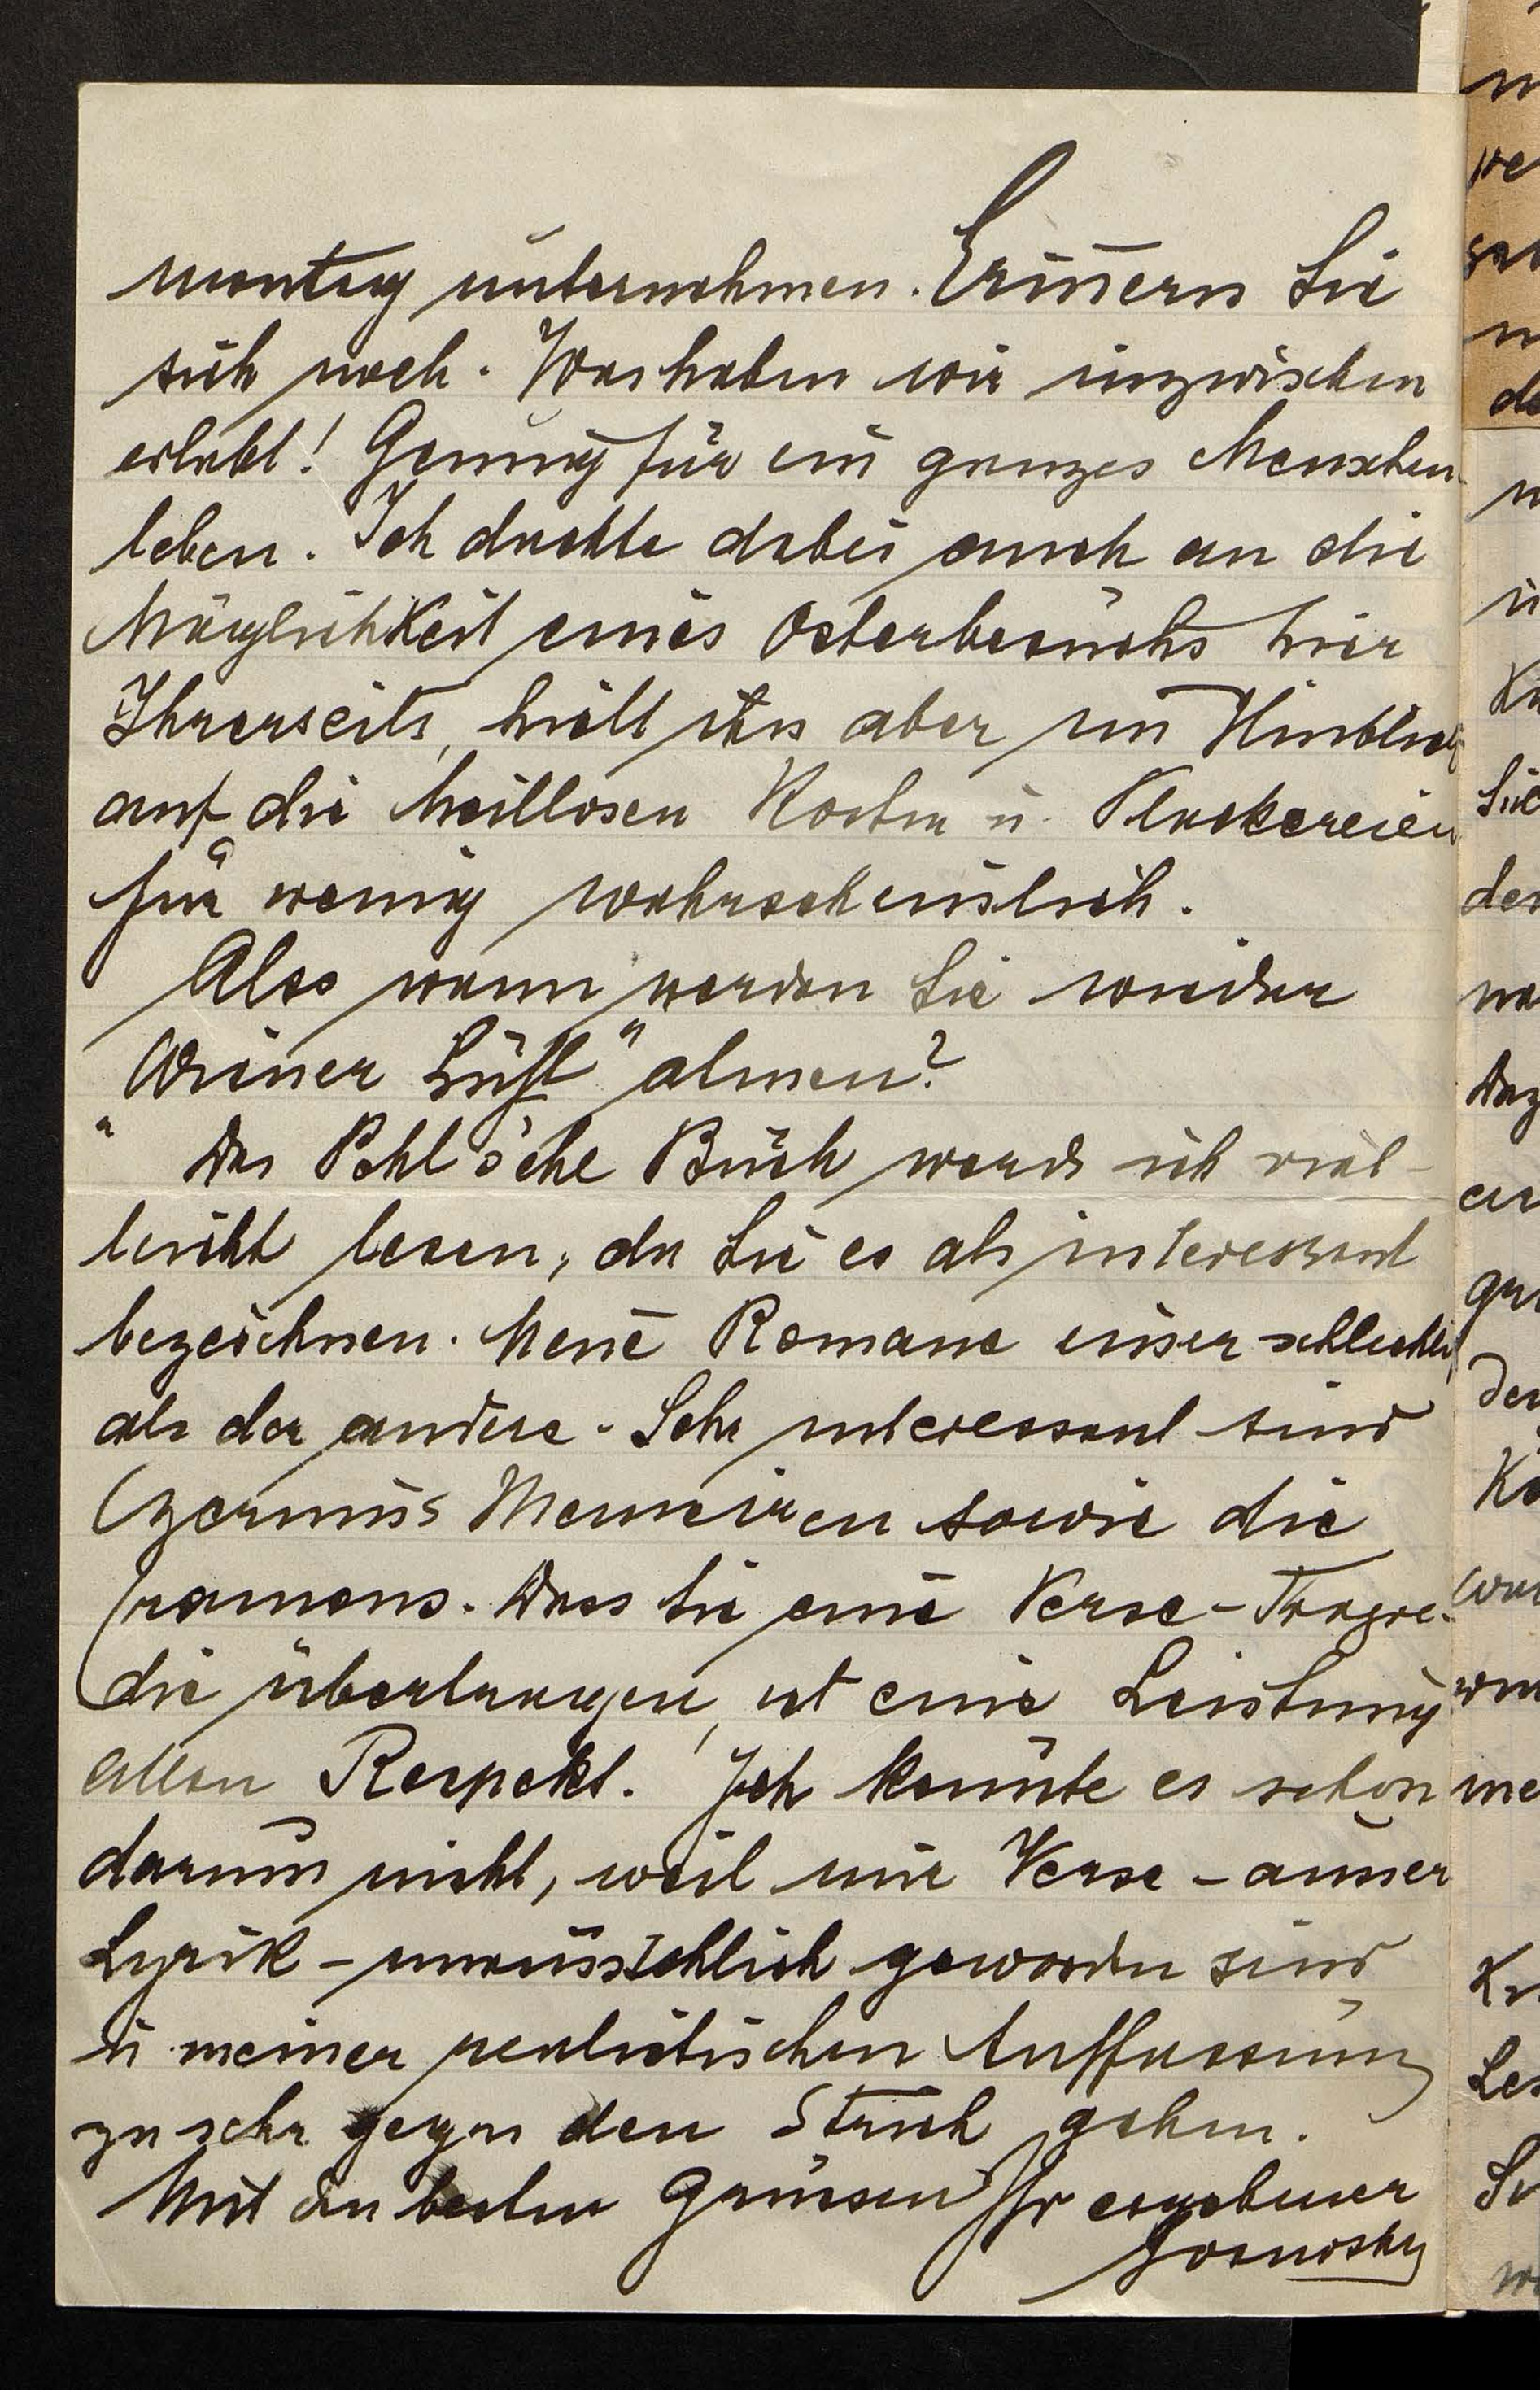 montag unternehmen. Erinnern Sie
sich noch. Was haben wir inzwischen
erlebt! Genug für ein ganzes Menschen-
leben. Ich dachte dabei auch an die
Möglichkeit eines Osterbesuchs hier
Ihrerseits, hielt ihn aber im Hinblick
auf die heillosen Kosten u. Plackereien
für wenig wahrscheinlich.
Also wann werden Sie wieder
„Wiener Luft" atmen?
Das Pohl'sche Buch werde ich viel-
leicht lesen, da Sie es als interessant
bezeichnen. Neue Romane einer schlechter
als der andere. Sehr interessant sind
Czernins Memoiren sowie die
Cramons. Dass Sie eine Verse-Tragoe-
die übertragen, ist eine Leistung
allen Respekt. Ich könnte es schon
darum nicht, weil mir Verse - ausser
Lyrik - unausstehlich geworden sind
u. meiner realistischen Auffassung
zu sehr gegen den Strich gehen.
Mit den besten Grüssen Ihr ergebener